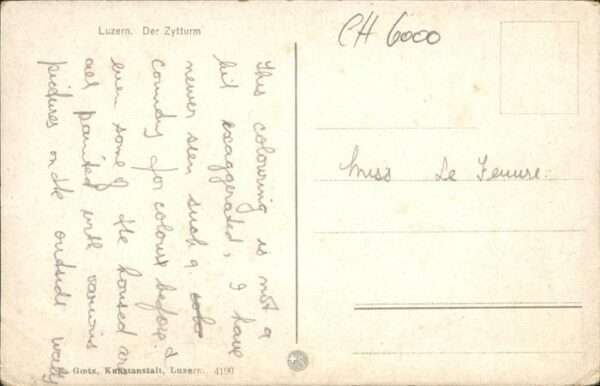 Luzern. Der Zytturm
CH 6000
This colouring is not a
bit exaggerated, I have
never seen such a
country for colours before. &
even some of the houses are
all painted with various
pictures on the outside walls
Miss Le Feuvre.
E. Goetz, Kunstanstalt, Luzern. 4190